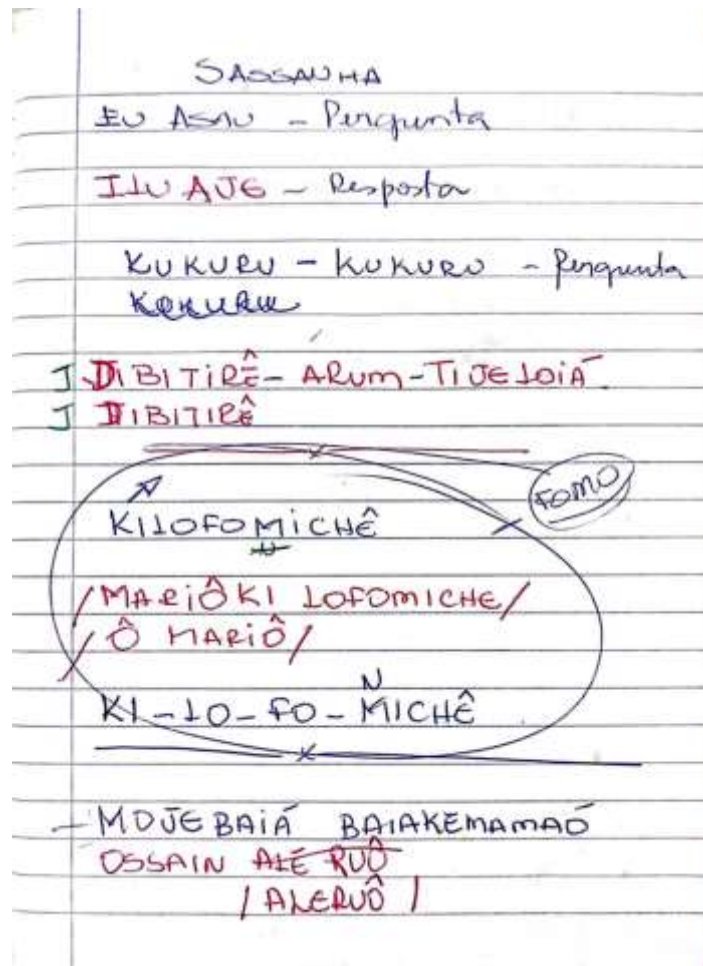 SASSANHA
EU ASAU - Pergunta
ILU AJE - Resposta
KUKURU - KUKURU - Pergunta
KUKURU
J DIBITIRÊ - ARUM - TIJELOIÁ
J DIBITIRÊ
FOMO
KILOFOMICHÊ
N
/MARIÔKI LOFOMICHE/
/Ô MARIÔ/
N
KI-LO-FO-MICHÊ
- MOJEBAIÁ BAIAKEMAMAÓ
OSSAIN ALÉ RUÔ
/ALERUÔ/